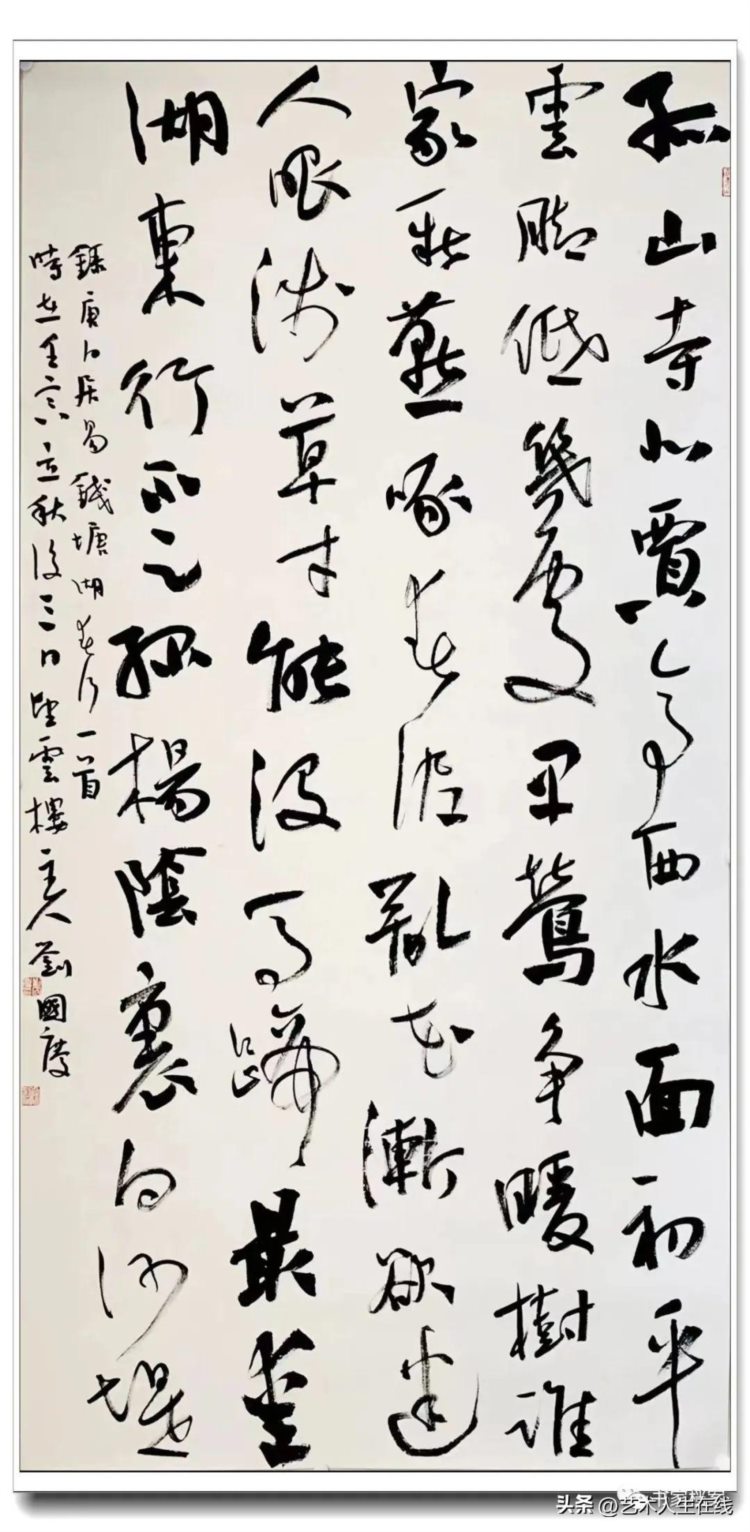 孤山寺北賈亭西水面初平
雲腳低幾處早鶯爭暖樹誰
家新燕啄春泥亂花漸欲迷
人眼淺草才能沒馬蹄最愛
湖東行不足綠楊陰裏白沙堤
錄唐白居易錢塘湖春行一首
時在壬寅立秋後三日望雲樓主人劉國慶
书家档案
头条 @艺术人生在线